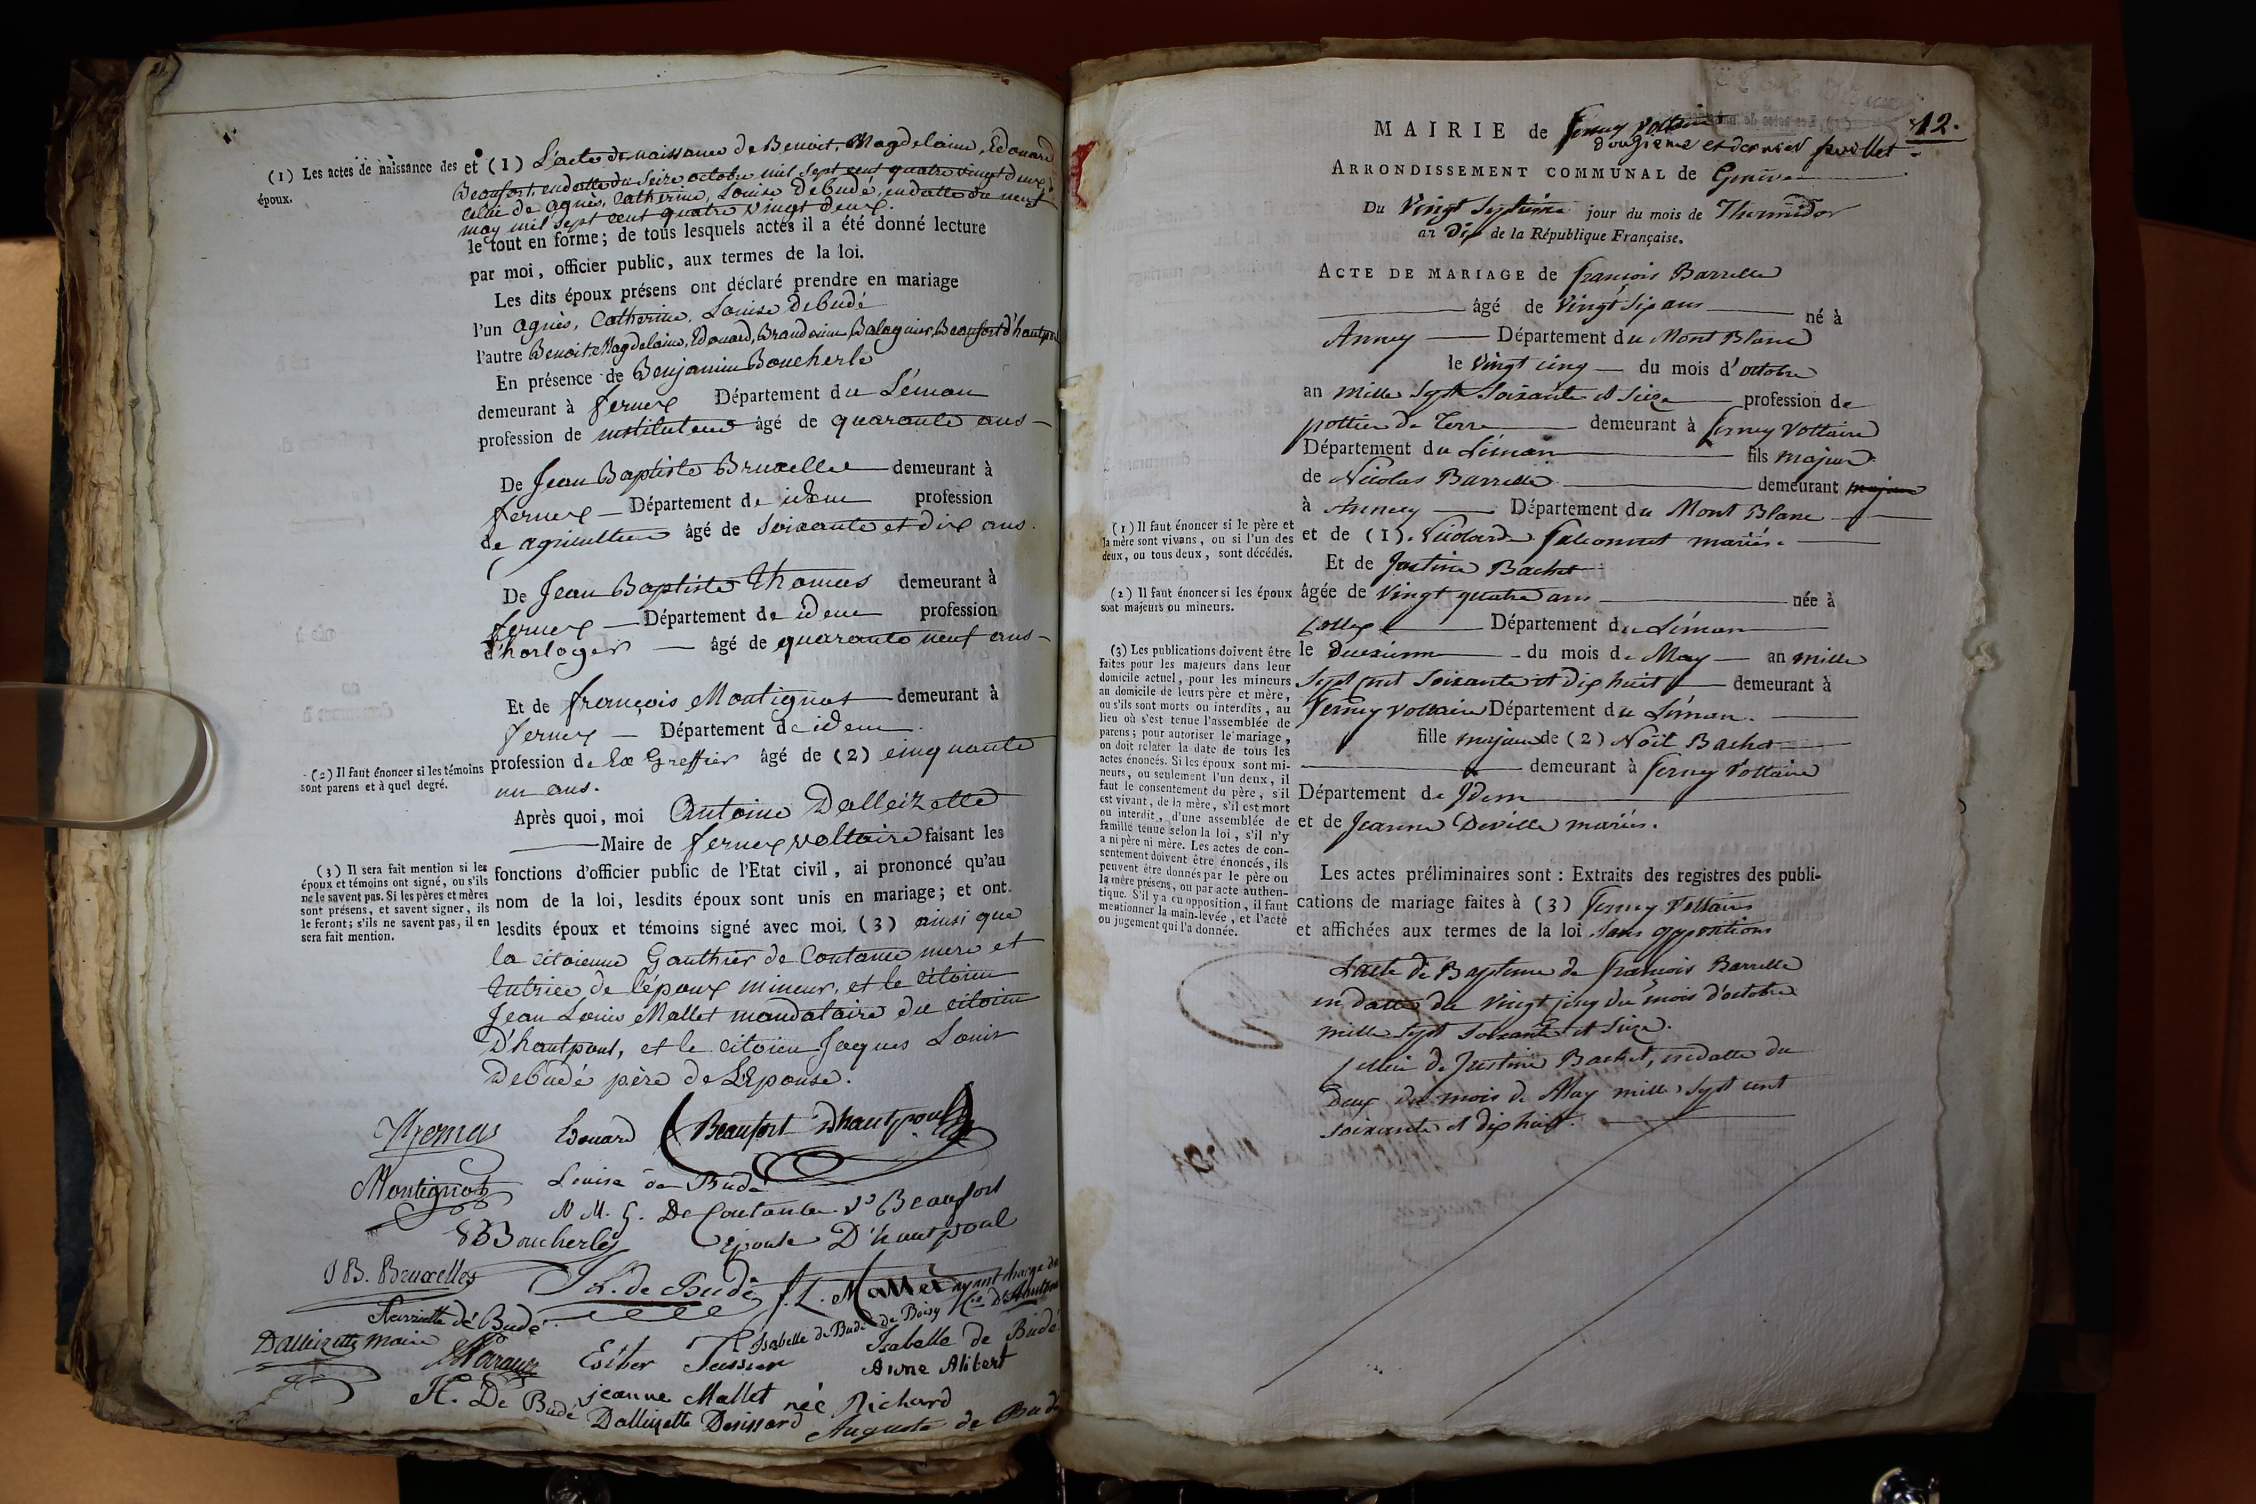 (1) Les actes de naissance des
époux.
et (1) L'acte de naissance de Benoit, Magdelaine, Edouard
Beaufort, en datte du seize octobre mil sept cent quatre vingt deux,
celui de agnès, Catherine, Louise Debudé, en datte du neuf
may mil sept cent quatre vingt deux.
le tout en forme; de tous lesquels actes il a été donné lecture
par moi, officier public, aux termes de la loi.
Les dits époux présens ont déclaré prendre en mariage
l'un agnès, Catherine, Louise Debudé
l'autre Benoit, Magdelaine, Edouard, Brandouin, Balaguier, Beaufort d'hautpoul
En présence de Benjamin Boucherle
demeurant à fernex Département du Léman
profession de instituteur âgé de quarante ans
De Jean Baptiste Bruxelle demeurant à
fernex Département de idem profession
de agriculteur âgé de soixante et dix ans.
De Jean Baptiste Thomas demeurant à
fernex Département de idem profession
d'horloger âgé de quarante neuf ans
Et de françois Montignot demeurant à
fernex Département de idem
(2) Il faut énoncer si les témoins
sont parens et à quel degré.
profession de Ex Greffier âgé de (2) cinquante
un ans.
Après quoi, moi Antoine Dalleizette
Maire de fernex voltaire faisant les
(3) Il sera fait mention si les
époux et témoins ont signé, ou s'ils
ne le savent pas. Si les pères et mères
sont présens, et savent signer, ils
le feront; s'ils ne savent pas, il en
sera fait mention.
fonctions d'officier public de l'Etat civil, ai prononcé qu'au
nom de la loi, lesdits époux sont unis en mariage; et ont
lesdits époux et témoins signé avec moi. (3) ainsi que
la citoienne Gauthier de Contance mere et
tutrice de l'époux mineur, et le citoien
Jean Louis Mallet mandataire du citoien
D'hautpoul, et le citoien Jaques Louis
Debudé père de L'Epouse.
Thomas Edouard Beaufort Dhautpoul
Montignot Louise de Budé
N. M. G. De Coutance Ve Beaufort
Boucherle épouse D'hautpoul
J B. Bruxelles J L. de Budé J. L. Mallet ayant charge de
Henriette de Budé Isabelle de Budé de Boisy
Dalleizette maire Esther Tessier Isabelle de Budé
Anne Alibert
H. De Budé jeanne Mallet née Richard
Dalleizette Auguste de Budé
12.
MAIRIE de ferney Voltaire
douzieme et dernier feuillet
ARRONDISSEMENT COMMUNAL de Genève
Du Vingt Septieme jour du mois de Thermidor
an Dix de la République Française.
ACTE DE MARIAGE de françois Barrelle
âgé de Vingt Six ans né à
Annecy Département du Mont Blanc
le Vingt cinq du mois d'octobre
an mille Sept Soixante et Seize profession de
pottier de Terre demeurant à ferney Voltaire
Département du Léman fils majeur
de Nicolas Barrelle demeurant
à Annecy Département du Mont Blanc
(1) Il faut énoncer si le père et
la mère sont vivans, ou si l'un des
deux, ou tous deux, sont décédés.
et de (1) falconnet mariés.
Et de Justine Bachet
(2) Il faut énoncer si les époux
sont majeurs ou mineurs.
âgée de Vingt quatre ans née à
Collex Département du Léman
le deuxieme du mois de May an mille
Sept Cent Soixante et dix huit demeurant à
ferney Voltaire Département du Léman.
fille majeure de (2) Noël Bachet
demeurant à ferney Voltaire
Département de Idem
et de Jeanne Deville mariés.
(3) Les publications doivent être
faites pour les majeurs dans leur
domicile actuel, pour les mineurs
au domicile de leurs père et mère,
ou s'ils sont morts ou interdits, au
lieu où s'est tenue l'assemblée de
parens; pour autoriser le mariage,
on doit relater la date de tous les
actes énoncés. Si les époux sont mi-
neurs, ou seulement l'un deux, il
faut le consentement du père, s'il
est vivant, de la mère, s'il est mort
ou interdit, d'une assemblée de
famille tenue selon la loi, s'il n'y
a ni père ni mère. Les actes de con-
sentement doivent être énoncés, ils
peuvent être donnés par le père ou
la mère présens, ou par acte authen-
tique. S'il y a eu opposition, il faut
mentionner la main-levée, et l'acte
ou jugement qui l'a donnée.
Les actes préliminaires sont : Extraits des registres des publi-
cations de mariage faites à (3) ferney Voltaire
et affichées aux termes de la loi sans oppositions
L'acte de Bapteme de françois Barrelle
en datte du Vingt cinq du mois d'octobre
mille Sept Soixante et Seize.
Celui de Justine Bachet, en datte du
deux du mois de May mille Sept cent
soixante et dix huit.